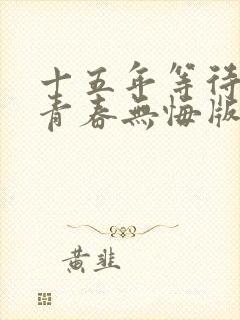 十五年等待
青春無悔版
黃韭